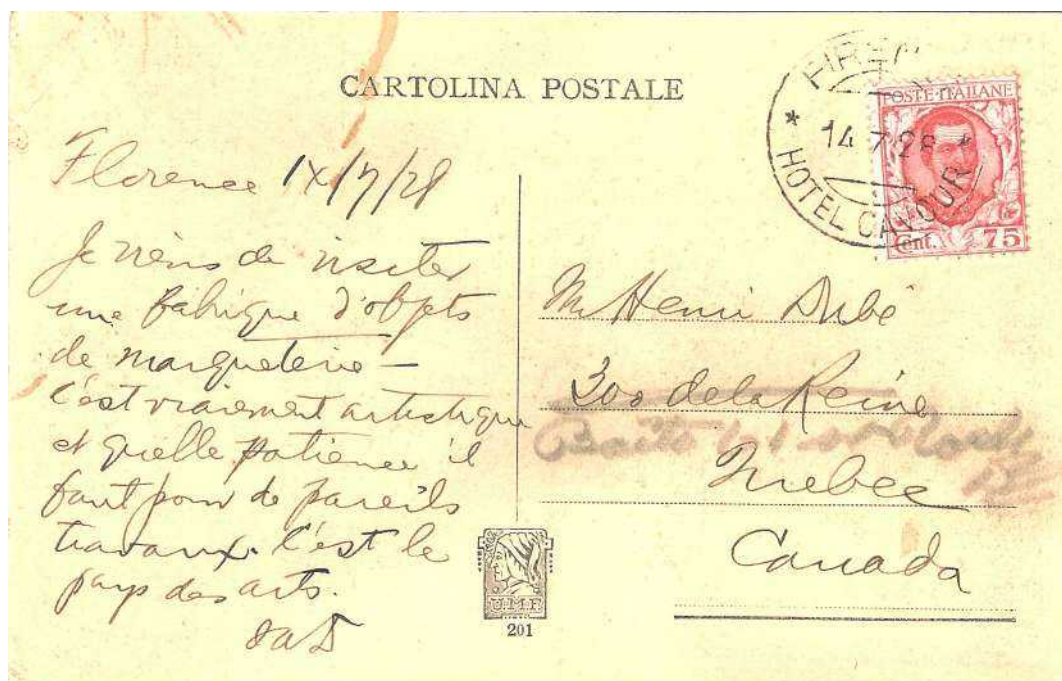 CARTOLINA POSTALE
FIREN
14 7 28
HOTEL CAVOUR
POSTE ITALIANE
Cent. 75
Florence 1X/7/28
Je viens de visiter
une fabrique d'objets
de marqueterie —
C'est vraiment artistique
et quelle patience il
faut pour de pareils
travaux. C'est le
pays des arts.
M Henri Dubé
300 de la Reine
Quebec
Canada
U.M.F.
201